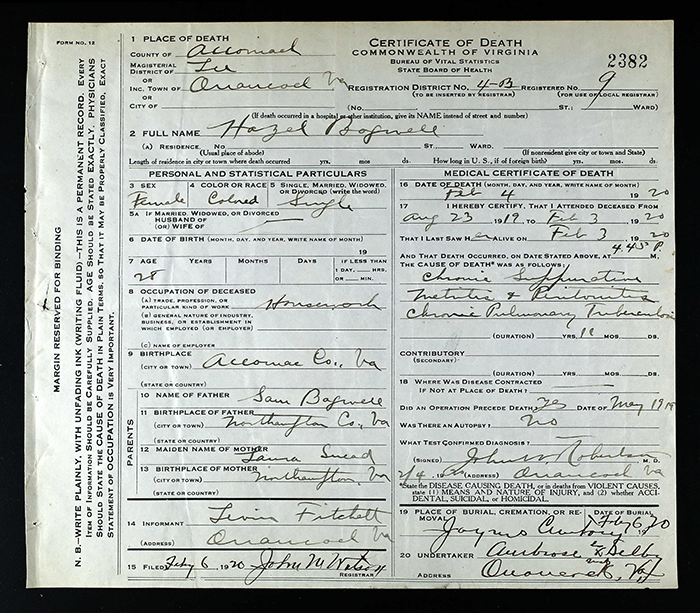 FORM No. 12
MARGIN RESERVED FOR BINDING
N. B.—WRITE PLAINLY, WITH UNFADING INK (WRITING FLUID)—THIS IS A PERMANENT RECORD. EVERY
ITEM OF INFORMATION SHOULD BE CAREFULLY SUPPLIED. AGE SHOULD BE STATED EXACTLY. PHYSICIANS
SHOULD STATE THE CAUSE OF DEATH IN PLAIN TERMS, SO THAT IT MAY BE PROPERLY CLASSIFIED. EXACT
STATEMENT OF OCCUPATION IS VERY IMPORTANT.
1 PLACE OF DEATH
COUNTY OF Accomack
MAGISTERIAL
DISTRICT OF Lee
OR
INC. TOWN OF Onancock Va
OR
CITY OF
CERTIFICATE OF DEATH
COMMONWEALTH OF VIRGINIA
BUREAU OF VITAL STATISTICS
STATE BOARD OF HEALTH
2382
REGISTRATION DISTRICT No. 4-B REGISTERED No. 9
(TO BE INSERTED BY REGISTRAR) (FOR USE OF LOCAL REGISTRAR)
(No. ST.; WARD)
(If death occurred in a hospital or other institution, give its NAME instead of street and number)
2 FULL NAME Hazel Bagwell
(A) RESIDENCE. No. ST. WARD.
(Usual place of abode) (If nonresident give city or town and State)
Length of residence in city or town where death occurred yrs. mos ds. How long in U. S., if of foreign birth? yrs. mos. ds.
PERSONAL AND STATISTICAL PARTICULARS
3 SEX 4 COLOR OR RACE 5 SINGLE, MARRIED, WIDOWED, OR DIVORCED (write the word)
Female Colored Single
5A IF MARRIED, WIDOWED, OR DIVORCED
HUSBAND OF
(OR) WIFE OF
6 DATE OF BIRTH (MONTH, DAY, AND YEAR, WRITE NAME OF MONTH) 19
7 AGE YEARS MONTHS DAYS IF LESS THAN 1 DAY, ---HRS. OR ---MIN.
28
8 OCCUPATION OF DECEASED
(A) TRADE, PROFESSION, OR PARTICULAR KIND OF WORK Housework
(B) GENERAL NATURE OF INDUSTRY, BUSINESS, OR ESTABLISHMENT IN WHICH EMPLOYED (OR EMPLOYER)
(C) NAME OF EMPLOYER
9 BIRTHPLACE
(CITY OR TOWN) Accomac Co., Va
(STATE OR COUNTRY)
PARENTS
10 NAME OF FATHER Sam Bagwell
11 BIRTHPLACE OF FATHER
(CITY OR TOWN) Northampton Co., Va
(STATE OR COUNTRY)
12 MAIDEN NAME OF MOTHER
13 BIRTHPLACE OF MOTHER
(CITY OR TOWN) Northampton, Va
(STATE OR COUNTRY)
14 INFORMANT Levin Fitchett
(ADDRESS) Onancock Va
15 FILED Feby 6, 1920 John M Watson
REGISTRAR
MEDICAL CERTIFICATE OF DEATH
16 DATE OF DEATH (MONTH, DAY, AND YEAR, WRITE NAME OF MONTH)
Feb 4 1920
17 I HEREBY CERTIFY, THAT I ATTENDED DECEASED FROM
Aug 23 1919, TO Feb 3 1920
THAT I LAST SAW Her ALIVE ON Feb 3 1920
AND THAT DEATH OCCURRED, ON DATE STATED ABOVE, AT 4.45 P. M.
THE CAUSE OF DEATH* WAS AS FOLLOWS:
Chronic Suppurative
Metritis & Peritonitis
Chronic Pulmonary Tuberculosis
(DURATION) YRS. MOS. DS.
CONTRIBUTORY
(SECONDARY)
(DURATION) YRS. MOS. DS.
18 WHERE WAS DISEASE CONTRACTED
IF NOT AT PLACE OF DEATH?
DID AN OPERATION PRECEDE DEATH? Yes DATE OF May 1919
WAS THERE AN AUTOPSY? No
WHAT TEST CONFIRMED DIAGNOSIS?
(SIGNED) John W Robertson M. D.
2/4 1920 (ADDRESS) Onancock Va
*State the DISEASE CAUSING DEATH, or in deaths from VIOLENT CAUSES, state (1) MEANS AND NATURE OF INJURY, and (2) whether ACCIDENTAL, SUICIDAL, or HOMICIDAL.
19 PLACE OF BURIAL, CREMATION, OR REMOVAL DATE OF BURIAL
Feby 6 20
20 UNDERTAKER Ambrose
ADDRESS Onancock, Va